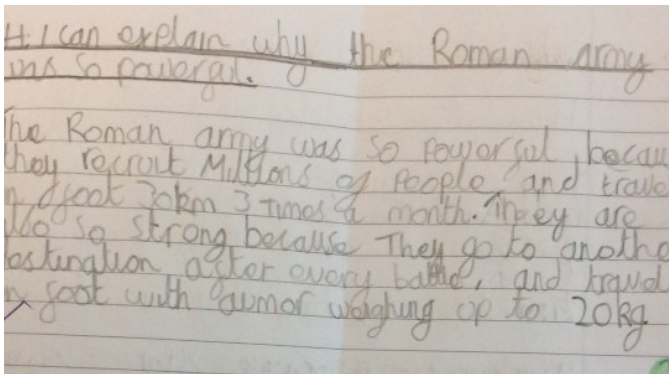 H.I can explain why the Roman army
was so powerful.
The Roman army was so powerful, becau
they recruit Millions of People, and trave
n foot 30km 3 Times a month. They are
so strong because They go to anothe
estination after every battle, and travel
n foot with aumor weighing up to 20kg